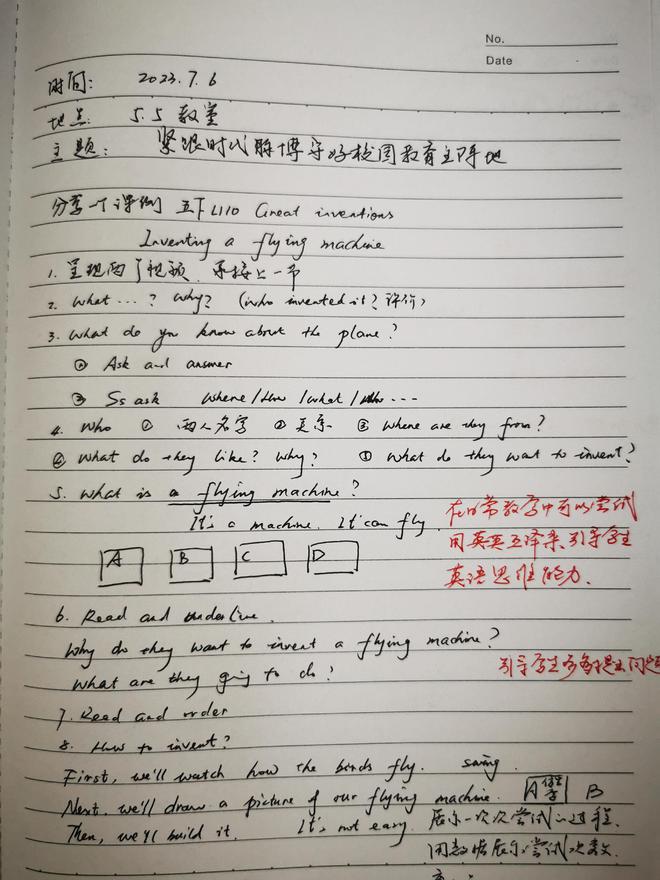 No.
Date
时间: 2023.7.6
地点: 5.5 教室
主题: 紧跟时代脉搏 守好校园教育主阵地
分享一个课例 五下 L110 Great inventions
Inventing a flying machine
1. 呈现两个视频 承接上一节
2. What ... ? Why? (who invented it?
3. What do you know about the plane?
① Ask and answer
② Ss ask Where / How / What / Who ...
4. Who ① 两人名字 ② 关系 ③ Where are they from?
④ What do they like? Why? ⑤ What do they want to invent?
5. What is a flying machine?
It's a machine. It can fly.
在日常教学中可以尝试
用英英互译来引导学生
英语思维能力.
A B C D
6. Read and underline.
Why do they want to invent a flying machine?
What are they going to do?
引导学生多多提出问题
7. Read and order
8. How to invent?
First, we'll watch how the birds fly.
Next, we'll draw a picture of our flying machine. A B
Then, we'll build it. It's not easy. 展示一次次尝试的过程.
用数据展示尝试次数.